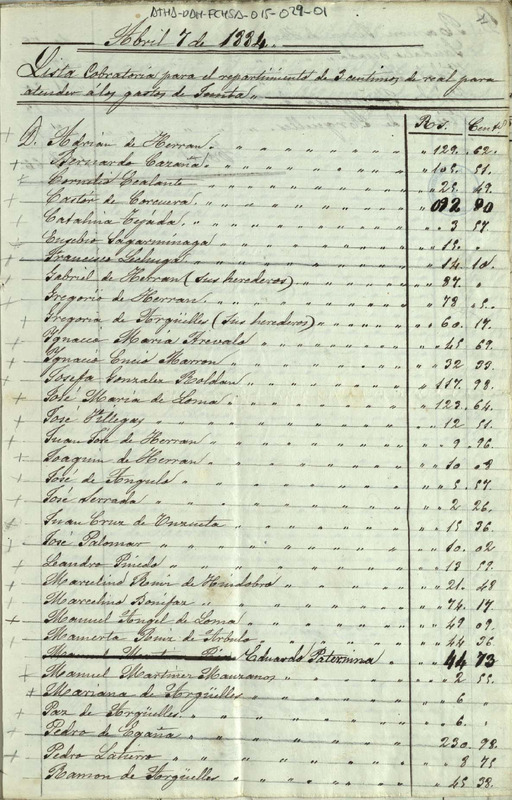 ATHA-DAH-FCHSA-015-029-01
Abril 7 de 1884.
Lista Cobratoria para el repartimiento de 3 centimos de real para
atender a los gastos de Junta.
Rs. Cents
D. Adrian de Herran. 129. 62.
Bernardo Cazaña. 108. 51.
Cornelio Cealante 28. 49.
Castor de Corcuera. 092 90
Catalina Tejada. 3 57
Eusebio Sagarminaga 18.
Francisco 14 10
Gabriel de Herran (sus herederos) 87.
Gregorio de Herran. 78
Gregoria de Argüelles (sus herederos) 60. 17.
Ignacio Maria Arevalo 48 69.
Ignacio Encio Marron 32 99.
Josefa Gonzalez Roldan 117. 98.
José Maria de Loma 123. 64.
José Villegas 12 51.
Juan José de Herran 9. 96.
Joaquin de Herran 10
José de Angulo 8. 57.
José Serrada 2 26.
Juan Cruz de Unzueta 18 36.
José Palomar 10. 02
Leandro Pinedo 13
Marcelino Ruiz de Huidobro 21. 48
Marcelino Bonifaz 74. 17
Manuel Angel de Loma 49 09.
Mamerta Ruiz de Arbulo 44 36
Eduardo Paternina 44 73
Manuel Martinez Manzanos 2
Mariana de Argüelles 6
Paz de Argüelles. 6.
Pedro de Egaña 230. 98.
Pedro Latierro 8 75
Ramon de Argüelles 48 38.